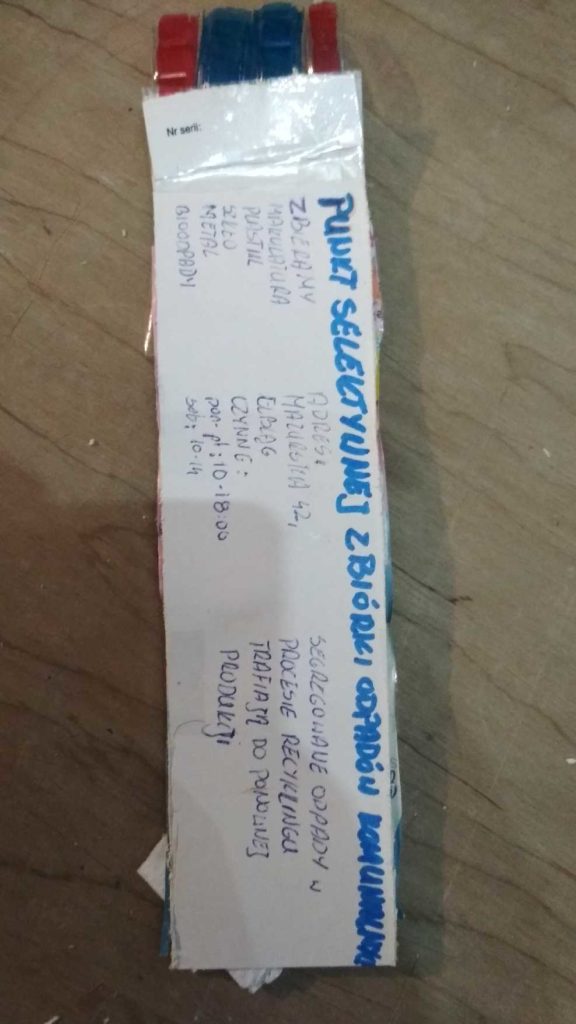 Nr serii:
PUNKT SELEKTYWNEJ ZBIÓRKI ODPADÓW KOMUNALNYCH
ZBIERAMY
MAKULATURA
PLASTIK
SZKŁO
METAL
BIOODPADY
ADRES:
MAZURSKA 42,
ELBLĄG
CZYNNE:
pon-pt: 10-18:00
sob: 10-14
SEGREGOWANE ODPADY W
PROCESIE RECYKLINGU
TRAFIAJĄ DO PONOWNEJ
PRODUKCJI